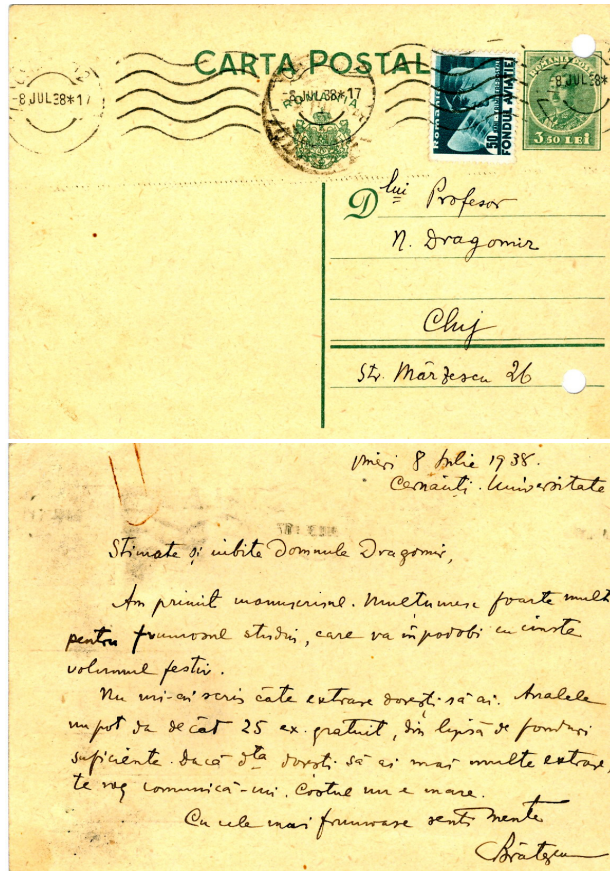 CARTA POSTALA
-8 JUL38*17
-8 JUL38*17
ROMANIA
Romania
50
FONDUL AVIAȚIEI
ROMANIA POSTA
8 JUL38*17
3,50 LEI
Dlui Profesor
N. Dragomir
Cluj
Str. Mârzescu 26
Vineri 8 Iulie 1938.
Cernăuți. Universitate
Stimate și iubite Domnule Dragomir,
Am primit manuscrisul. Mulțumesc foarte mult
pentru frumosul studiu, care va împodobi cu cinste
volumul festiv.
Nu mi-ai scris câte extrase dorești să ai. Analele
nu pot da decât 25 ex. gratuit, din lipsă de fonduri
suficiente. Dacă dta dorești să ai mai multe extrase,
te rog comunică-mi. Costul nu e mare.
Cu cele mai frumoase sentimente
CBrătescu